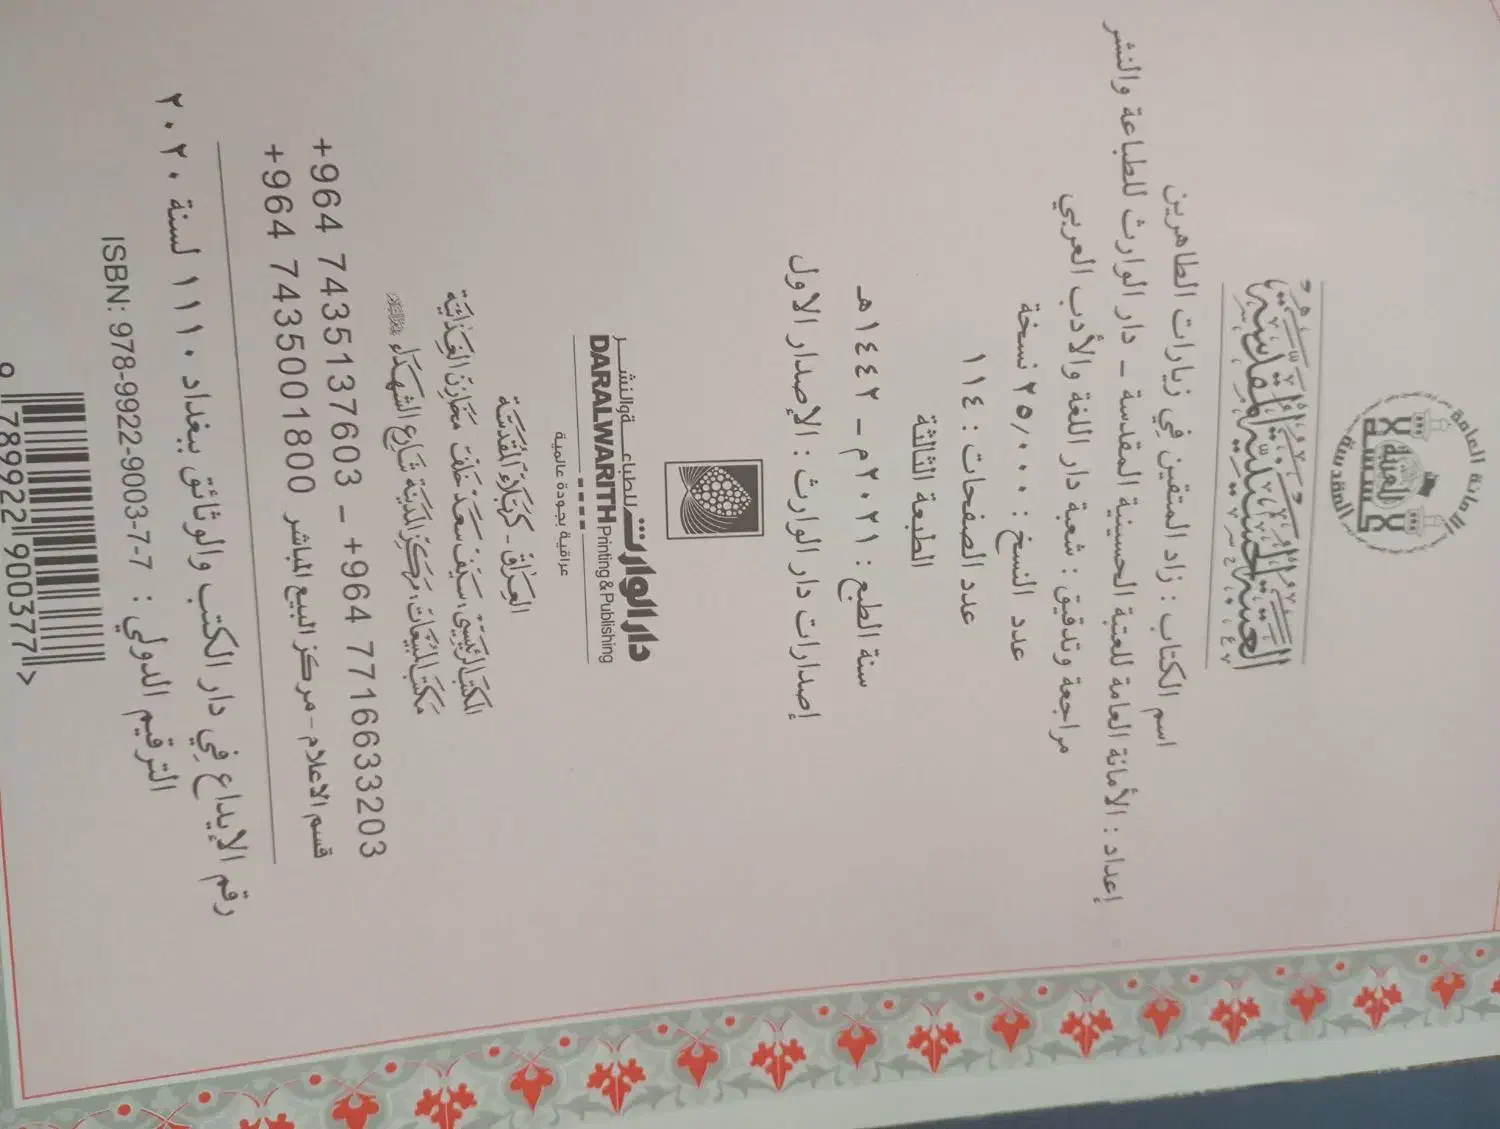 الأمانة العامة للعتبة الحسينية المقدسة
العتبة الحسينية المقدسة
اسم الكتاب : زاد المتقين في زيارات الطاهرين
إعداد : الأمانة العامة للعتبة الحسينية المقدسة – دار الوارث للطباعة والنشر
مراجعة وتدقيق : شعبة دار اللغة والأدب العربي
عدد النسخ : ٢٥٫٠٠٠ نسخة
عدد الصفحات : ١١٤
الطبعة الثالثة
سنة الطبع : ٢٠٢١م – ١٤٤٢هـ
إصدارات دار الوارث : الإصدار الاول
دار الوارث للطباعة والنشر
DARALWARITH Printing & Publishing
عراقية بجودة عالمية
العراق - كربلاء المقدسة
المكتب الرئيسي، سيف سعد خلف مخازن الغذائية
مكتب المبيعات، مركز المدينة شارع الشهداء
+964 7435137603 – +964 7716633203
قسم الاعلام - مركز البيع المباشر +964 7435001800
رقم الإيداع في دار الكتب والوثائق ببغداد ١١١٠ لسنة ٢٠٢٠
الترقيم الدولي : ISBN: 978-9922-9003-7-7
9 789922 900377 >